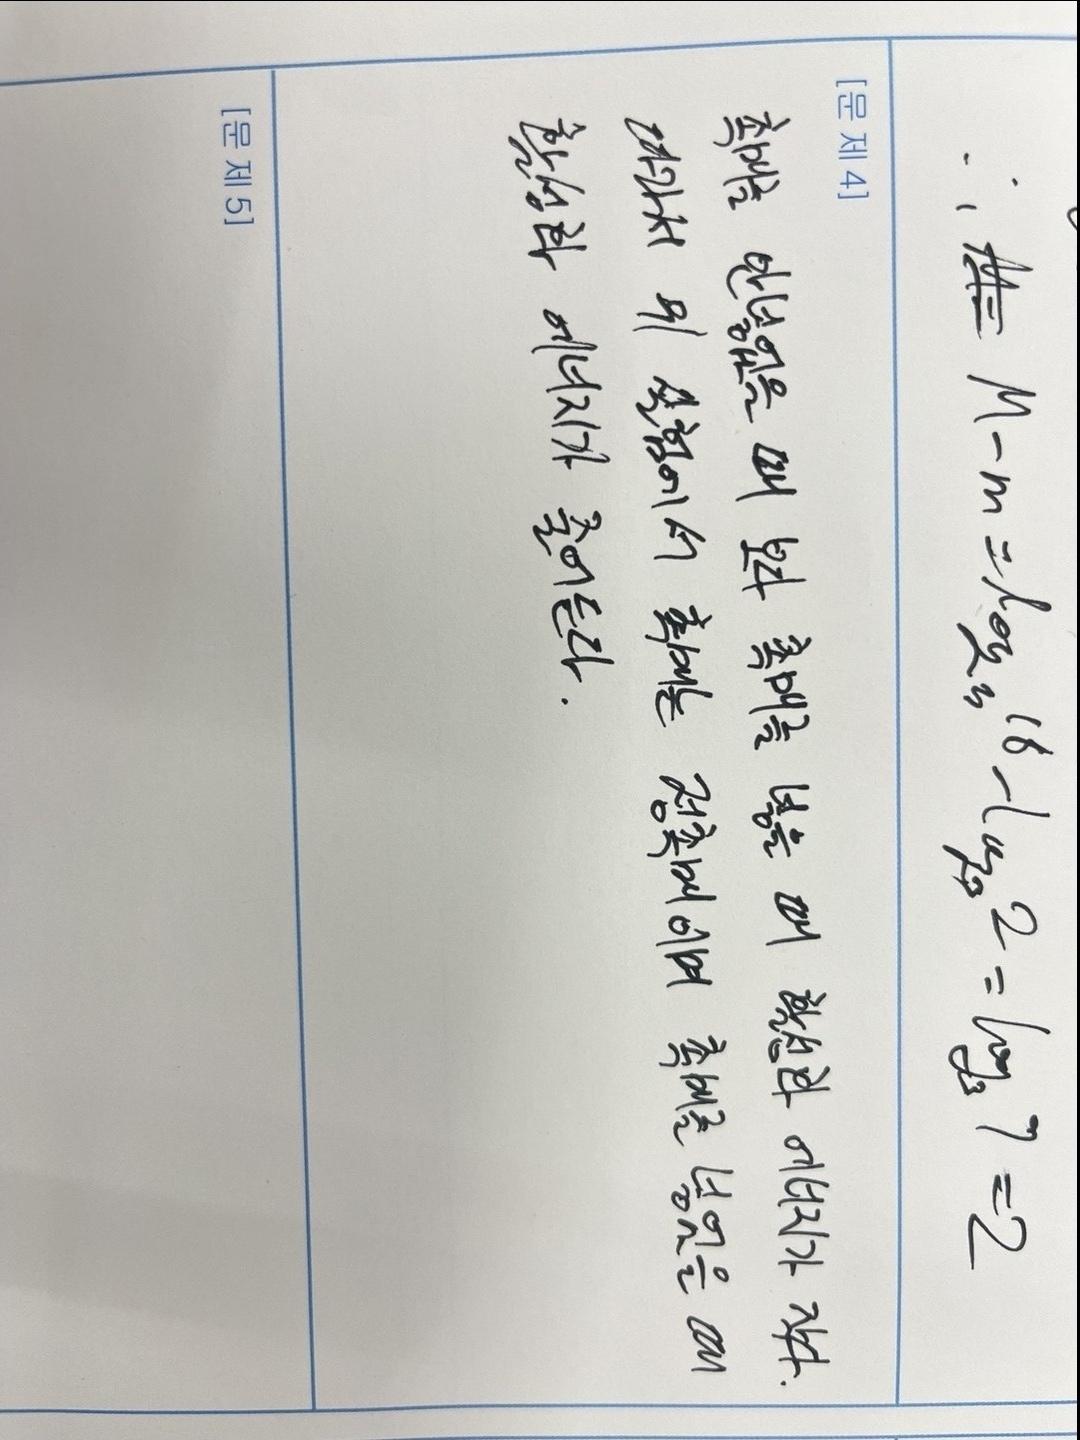 ∴ M-m = log₃18 - log₃2 = log₃9 = 2
[문제 4]
촉매를 안넣었을 때 보다 촉매를 넣은 때 활성화 에너지가 작다.
따라서 위 실험에서 촉매는 정촉매이며 촉매를 넣었을 때
활성화 에너지가 줄어든다.
[문제 5]